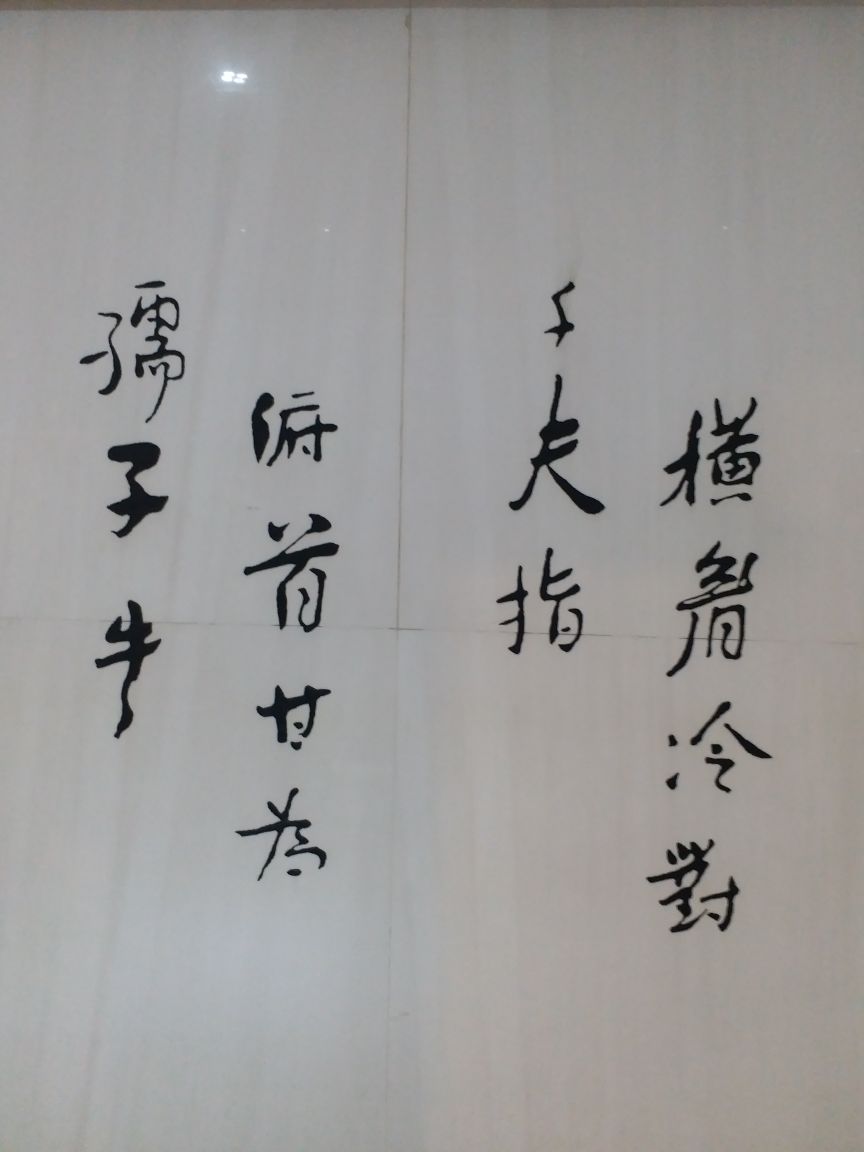 橫眉冷對
千夫指
俯首甘為
孺子牛